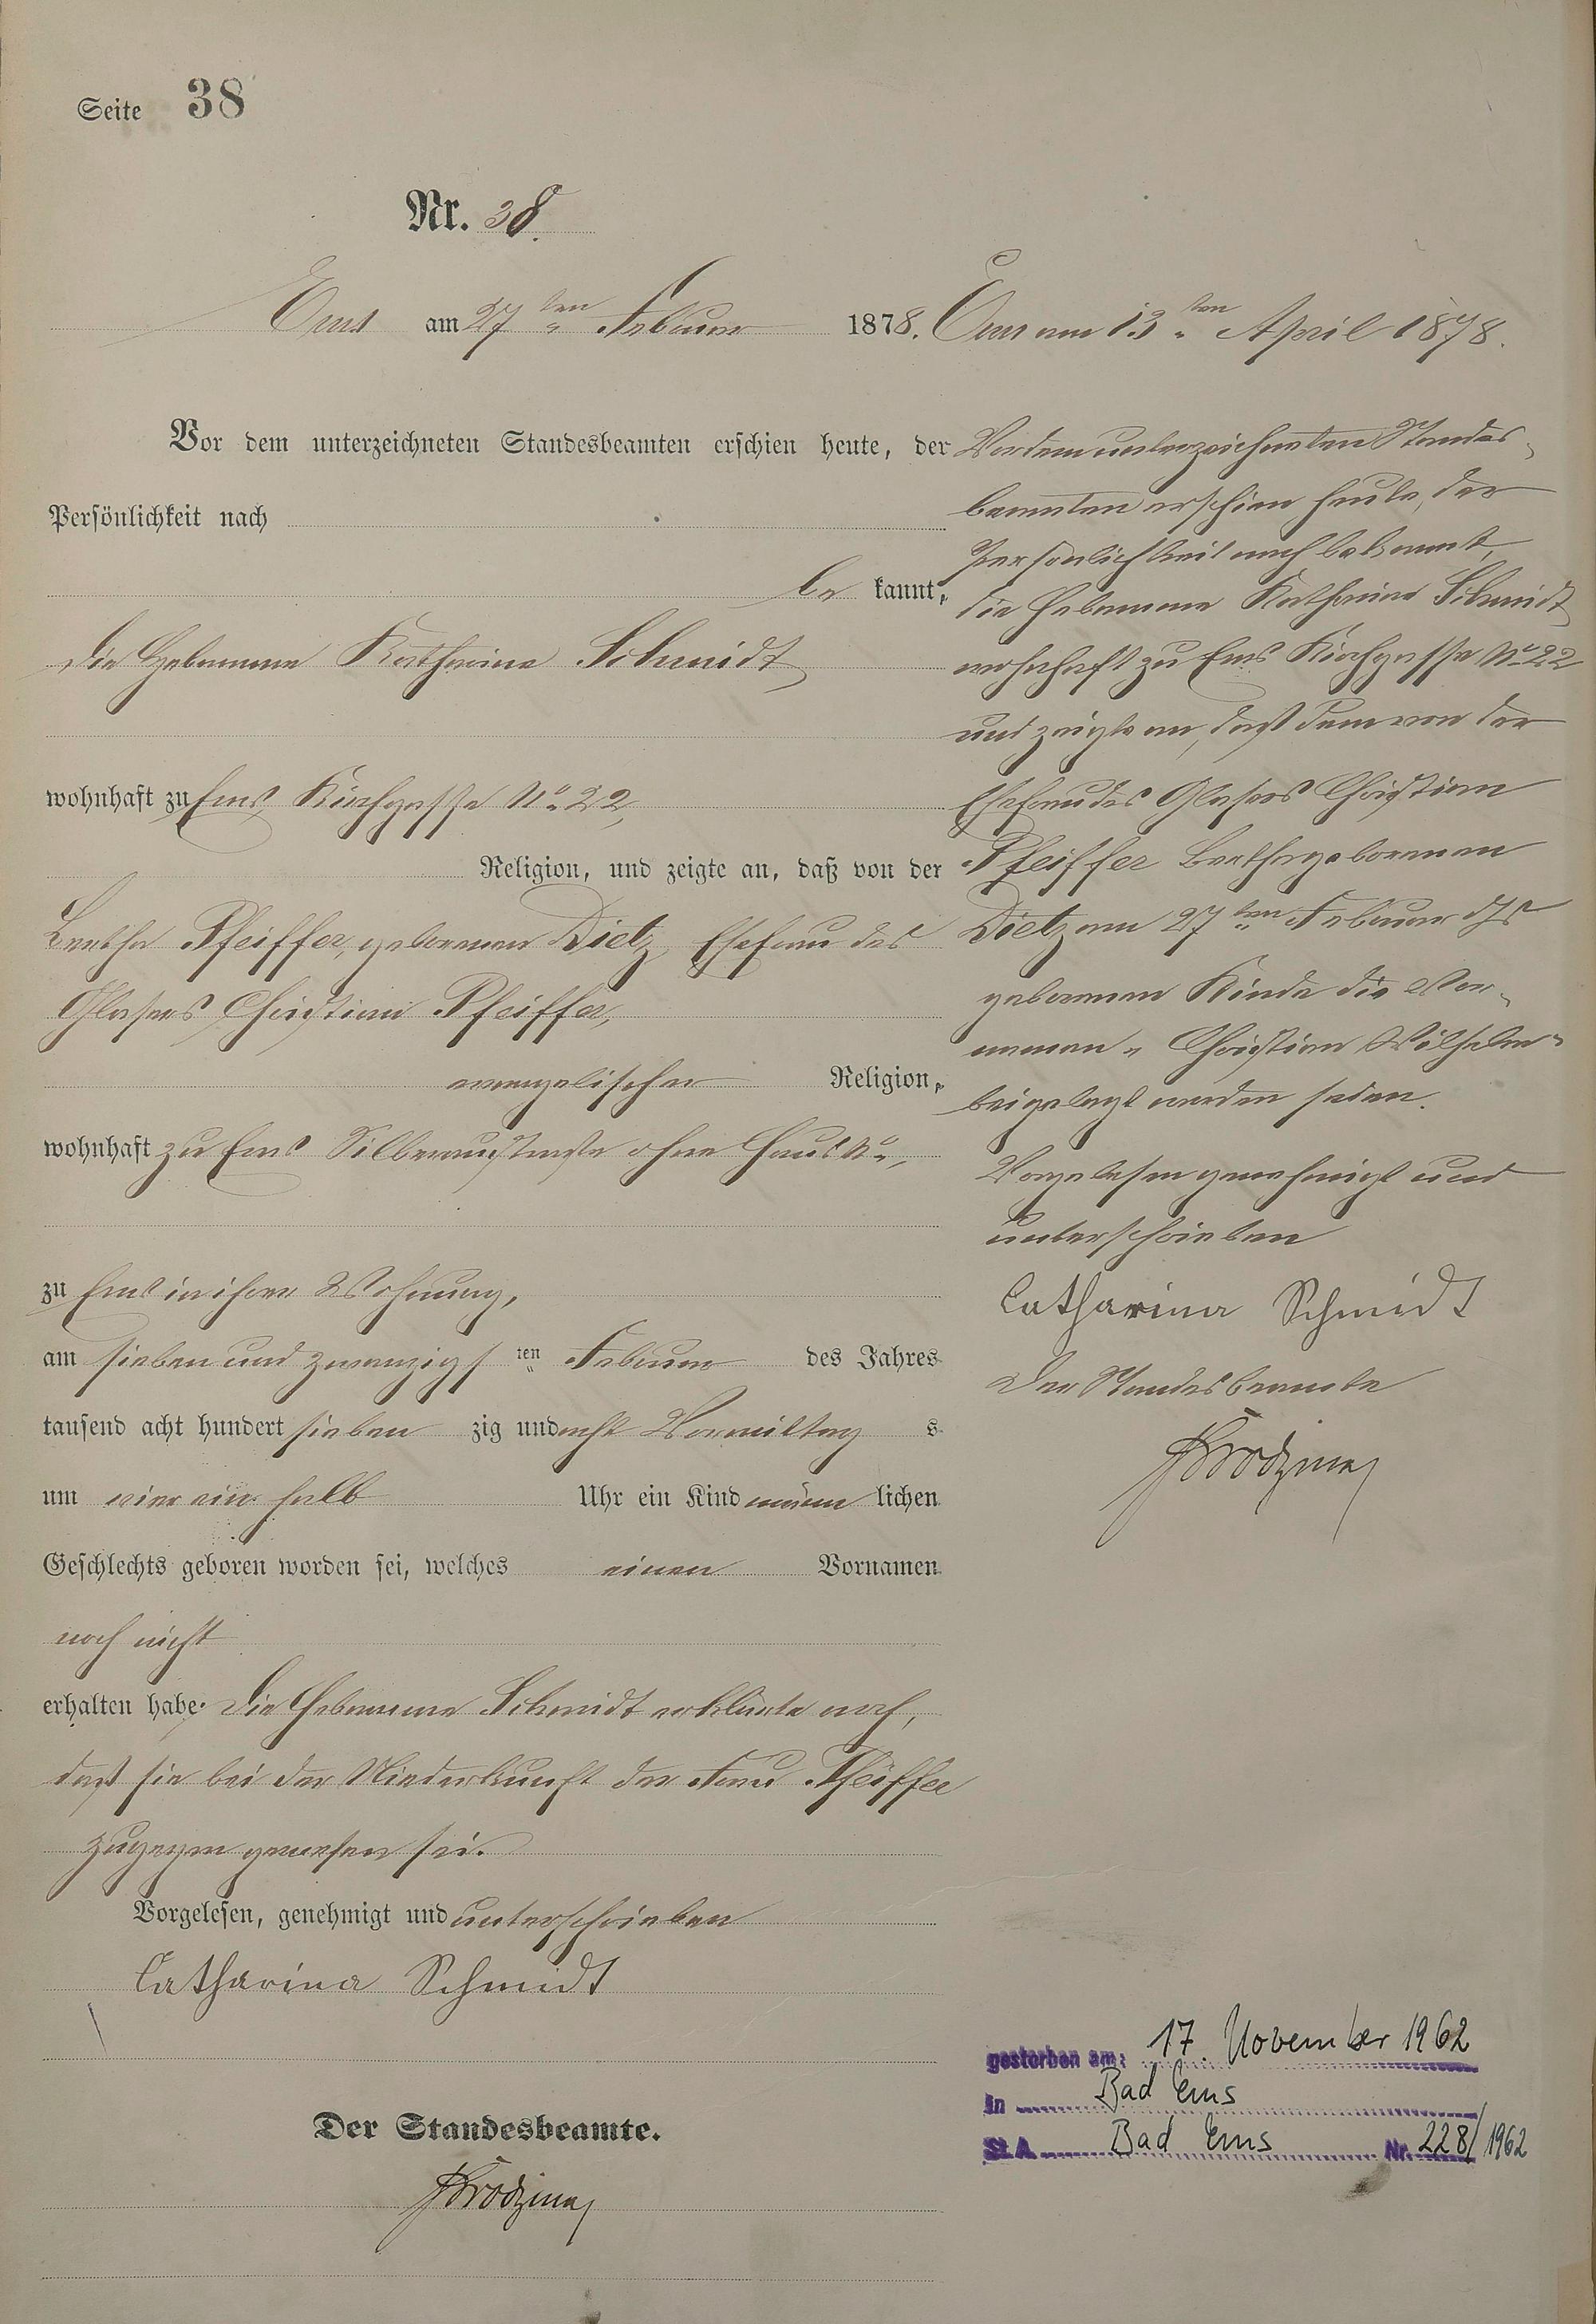 Seite 38
Nr. 38.
Ems am 27ten Februar 1878.
Vor dem unterzeichneten Standesbeamten erschien heute, der
Persönlichkeit nach
be kannt,
die Hebamme Katharina Schmidt
wohnhaft zu Ems Kirchgasse No 22,
Religion, und zeigte an, daß von der
Bertha Pfeiffer, geborenen Dietz, Ehefrau des
Glasers Christian Pfeiffer,
evangelischer Religion,
wohnhaft zu Ems Silberaustraße ohne Haus No,
zu Ems in ihrer Wohnung,
am sieben und zwanzigsten Februar des Jahres
tausend acht hundert sieben zig und acht Vormittags
um vier ein halb Uhr ein Kind männlichen
Geschlechts geboren worden sei, welches einen Vornamen
noch nicht
erhalten habe. Die Hebamme Schmidt erklärte noch,
daß sie bei der Niederkunft der Frau Pfeiffer
zugegen gewesen sei.
Vorgelesen, genehmigt und unterschrieben
Catharina Schmidt
Der Standesbeamte.
Ems am 13ten April 1878.
Vor dem unterzeichneten Standes-
beamten erschien heute, der
Persönlichkeit nach bekannt,
die Hebamme Katharina Schmidt
wohnhaft zu Ems Kirchgasse No 22
und zeigte an, daß dem von der
Ehefrau des Glasers Christian
Pfeiffer Bertha geborenen
Dietz am 27ten Februar ds Js
geborenen Kinde die Vor-
namen „Christian Wilhelm"
beigelegt worden seien.
Vorgelesen genehmigt und
unterschrieben
Catharina Schmidt
Der Standesbeamte
gestorben am: 17. November 1962
in Bad Ems
St. A. Bad Ems Nr. 228/1962